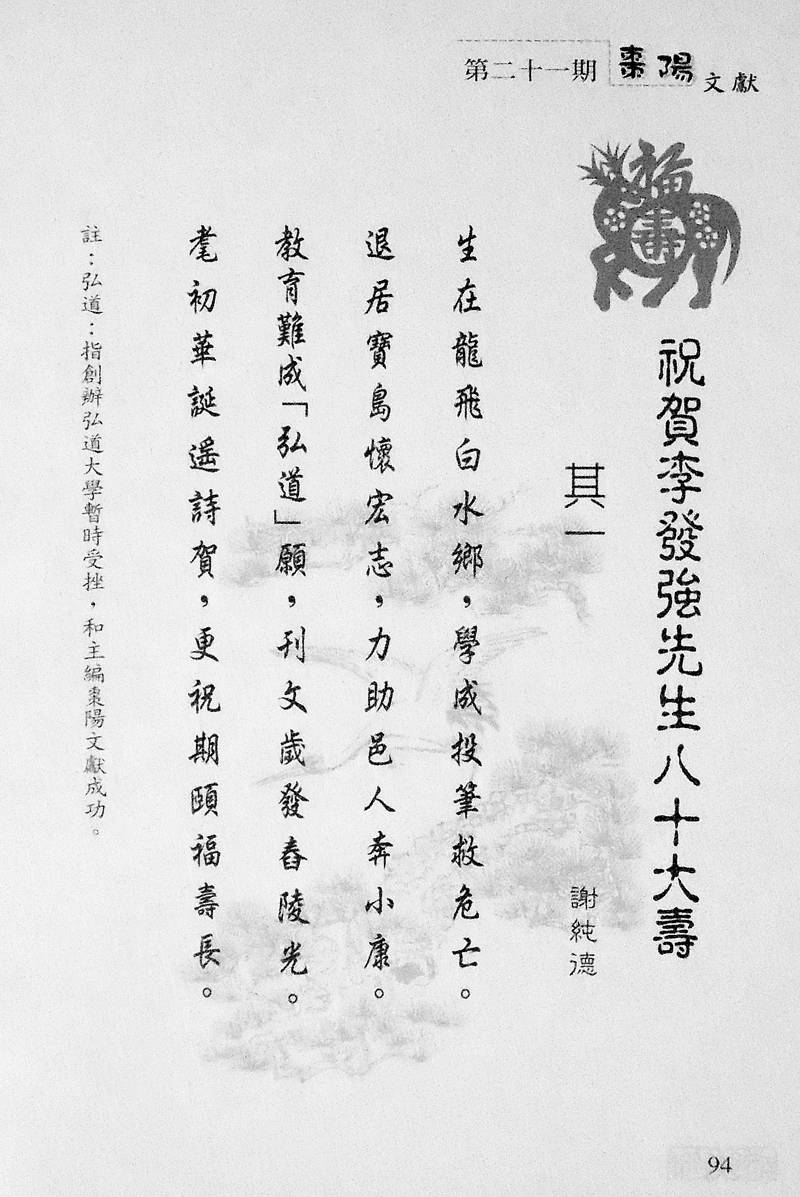 第二十一期 棗陽文獻
福壽
祝賀李發強先生八十大壽
其一
謝純德
生在龍飛白水鄉，學成投筆救危亡。
退居寶島懷宏志，力助邑人奔小康。
教育難成「弘道」願，刊文歲發舂陵光。
耄初華誕遥詩賀，更祝期頤福壽長。
註：弘道：指創辦弘道大學暫時受挫，和主編棗陽文獻成功。
94